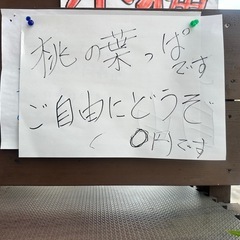 桃の葉っぱ
です
ご自由にどうぞ
(0円)です